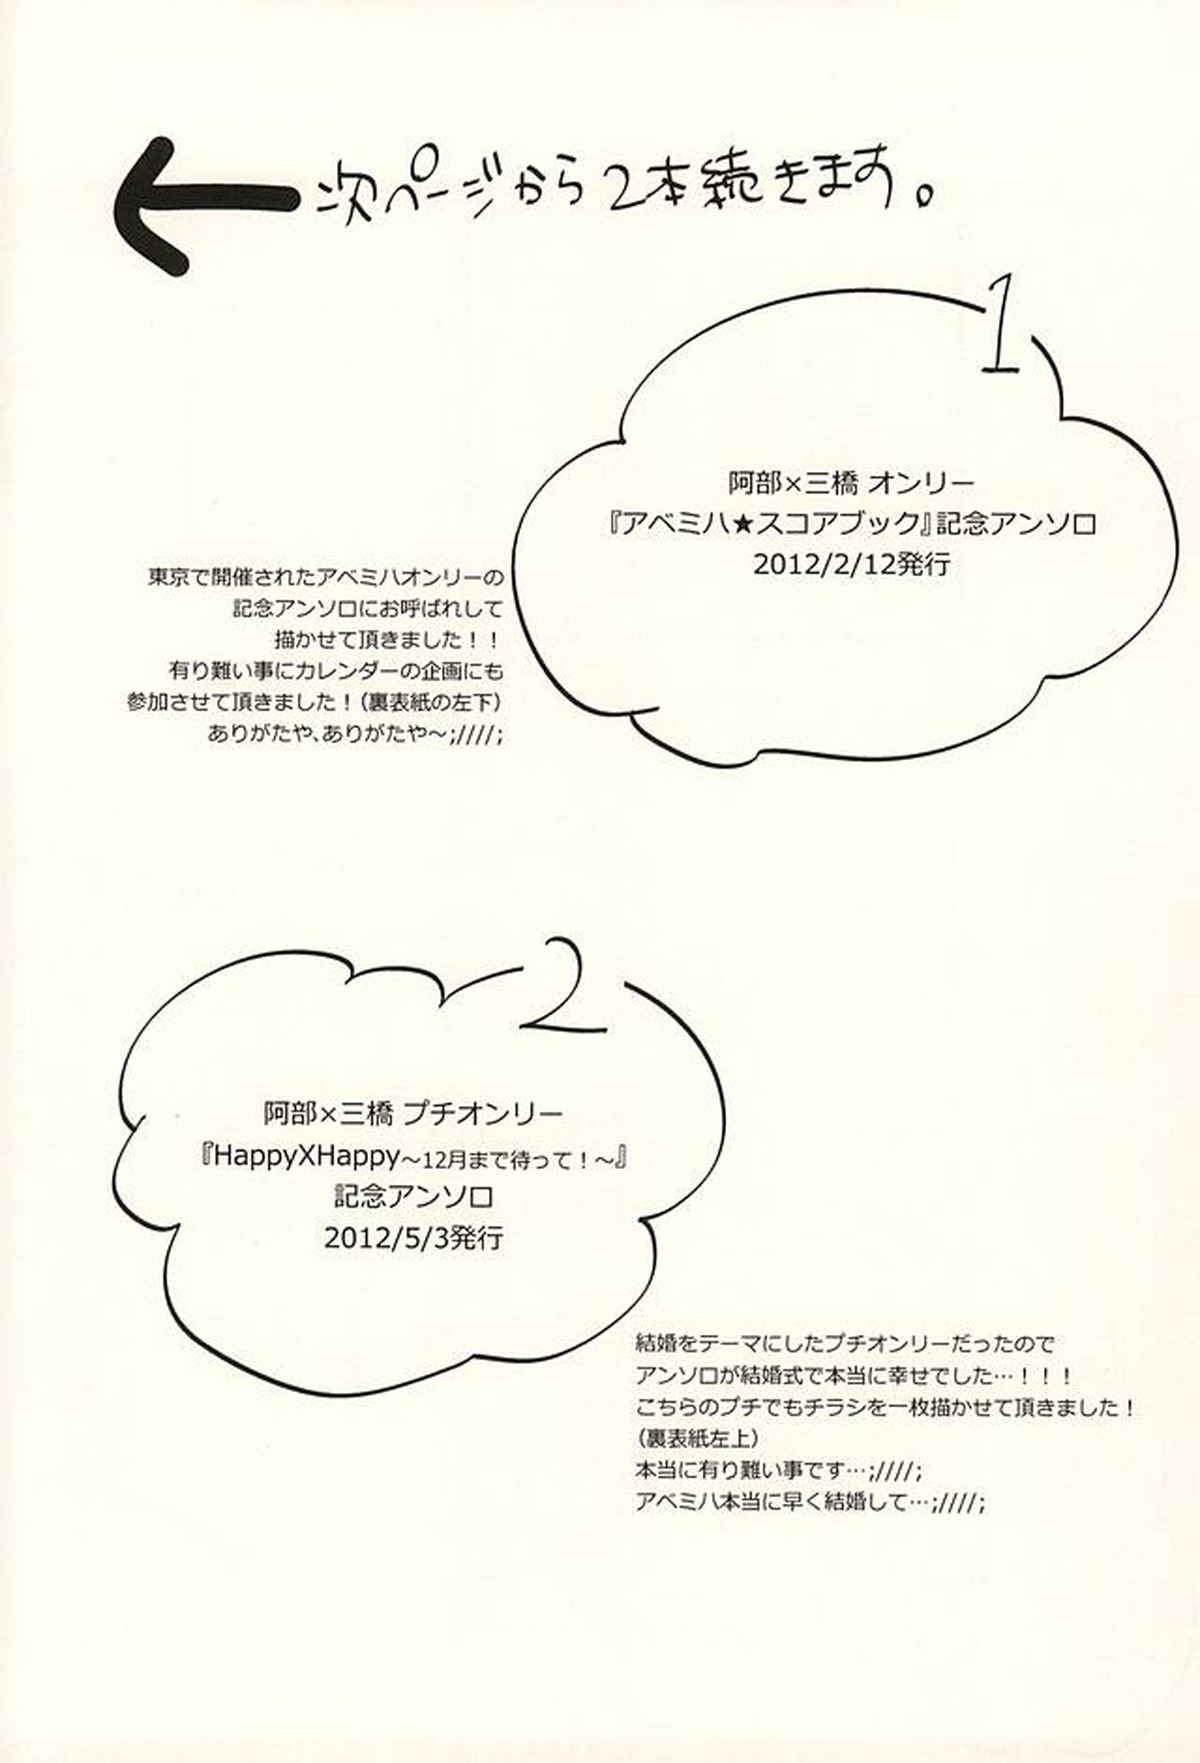 次ページから2本続きます。
1
阿部×三橋 オンリー
『アベミハ★スコアブック』記念アンソロ
2012/2/12発行
東京で開催されたアベミハオンリーの
記念アンソロにお呼ばれして
描かせて頂きました!!
有り難い事にカレンダーの企画にも
参加させて頂きました!(裏表紙の左下)
ありがたや、ありがたや~;////;
2
阿部×三橋 プチオンリー
『HappyXHappy~12月まで待って!~』
記念アンソロ
2012/5/3発行
結婚をテーマにしたプチオンリーだったので
アンソロが結婚式で本当に幸せでした…!!!
こちらのプチでもチラシを一枚描かせて頂きました!
(裏表紙左上)
本当に有り難い事です…;////;
アベミハ本当に早く結婚して…;////;